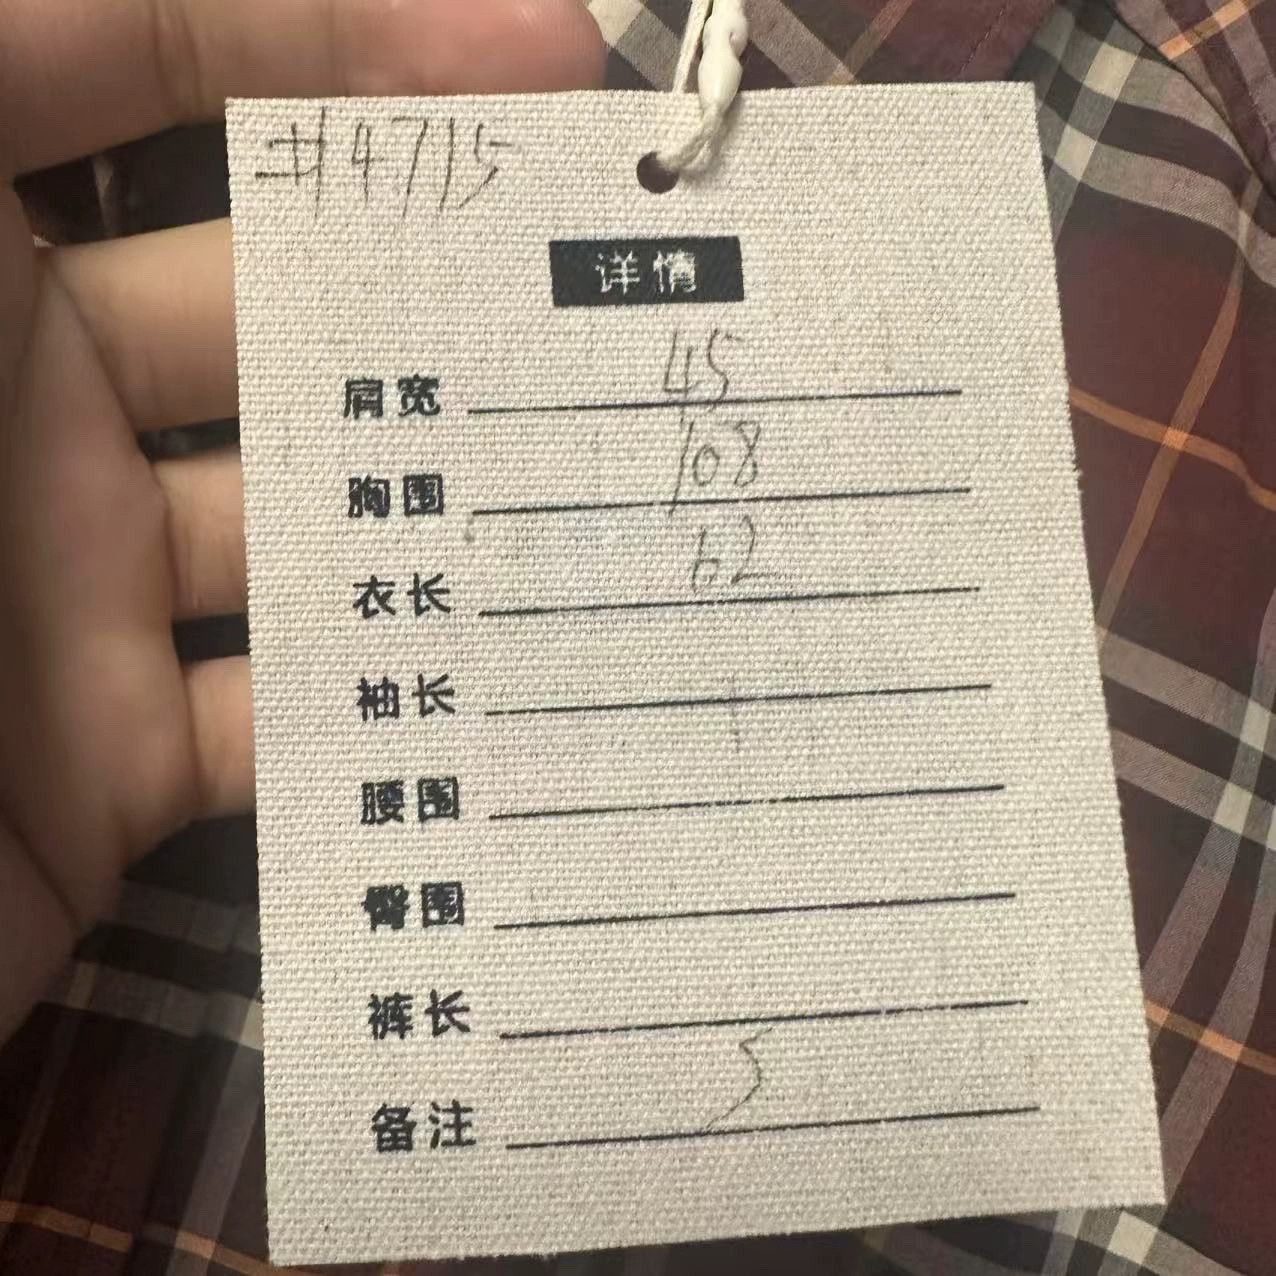 #4715
详情
肩宽 45
胸围 108
衣长 62
袖长
腰围
臀围
裤长
备注